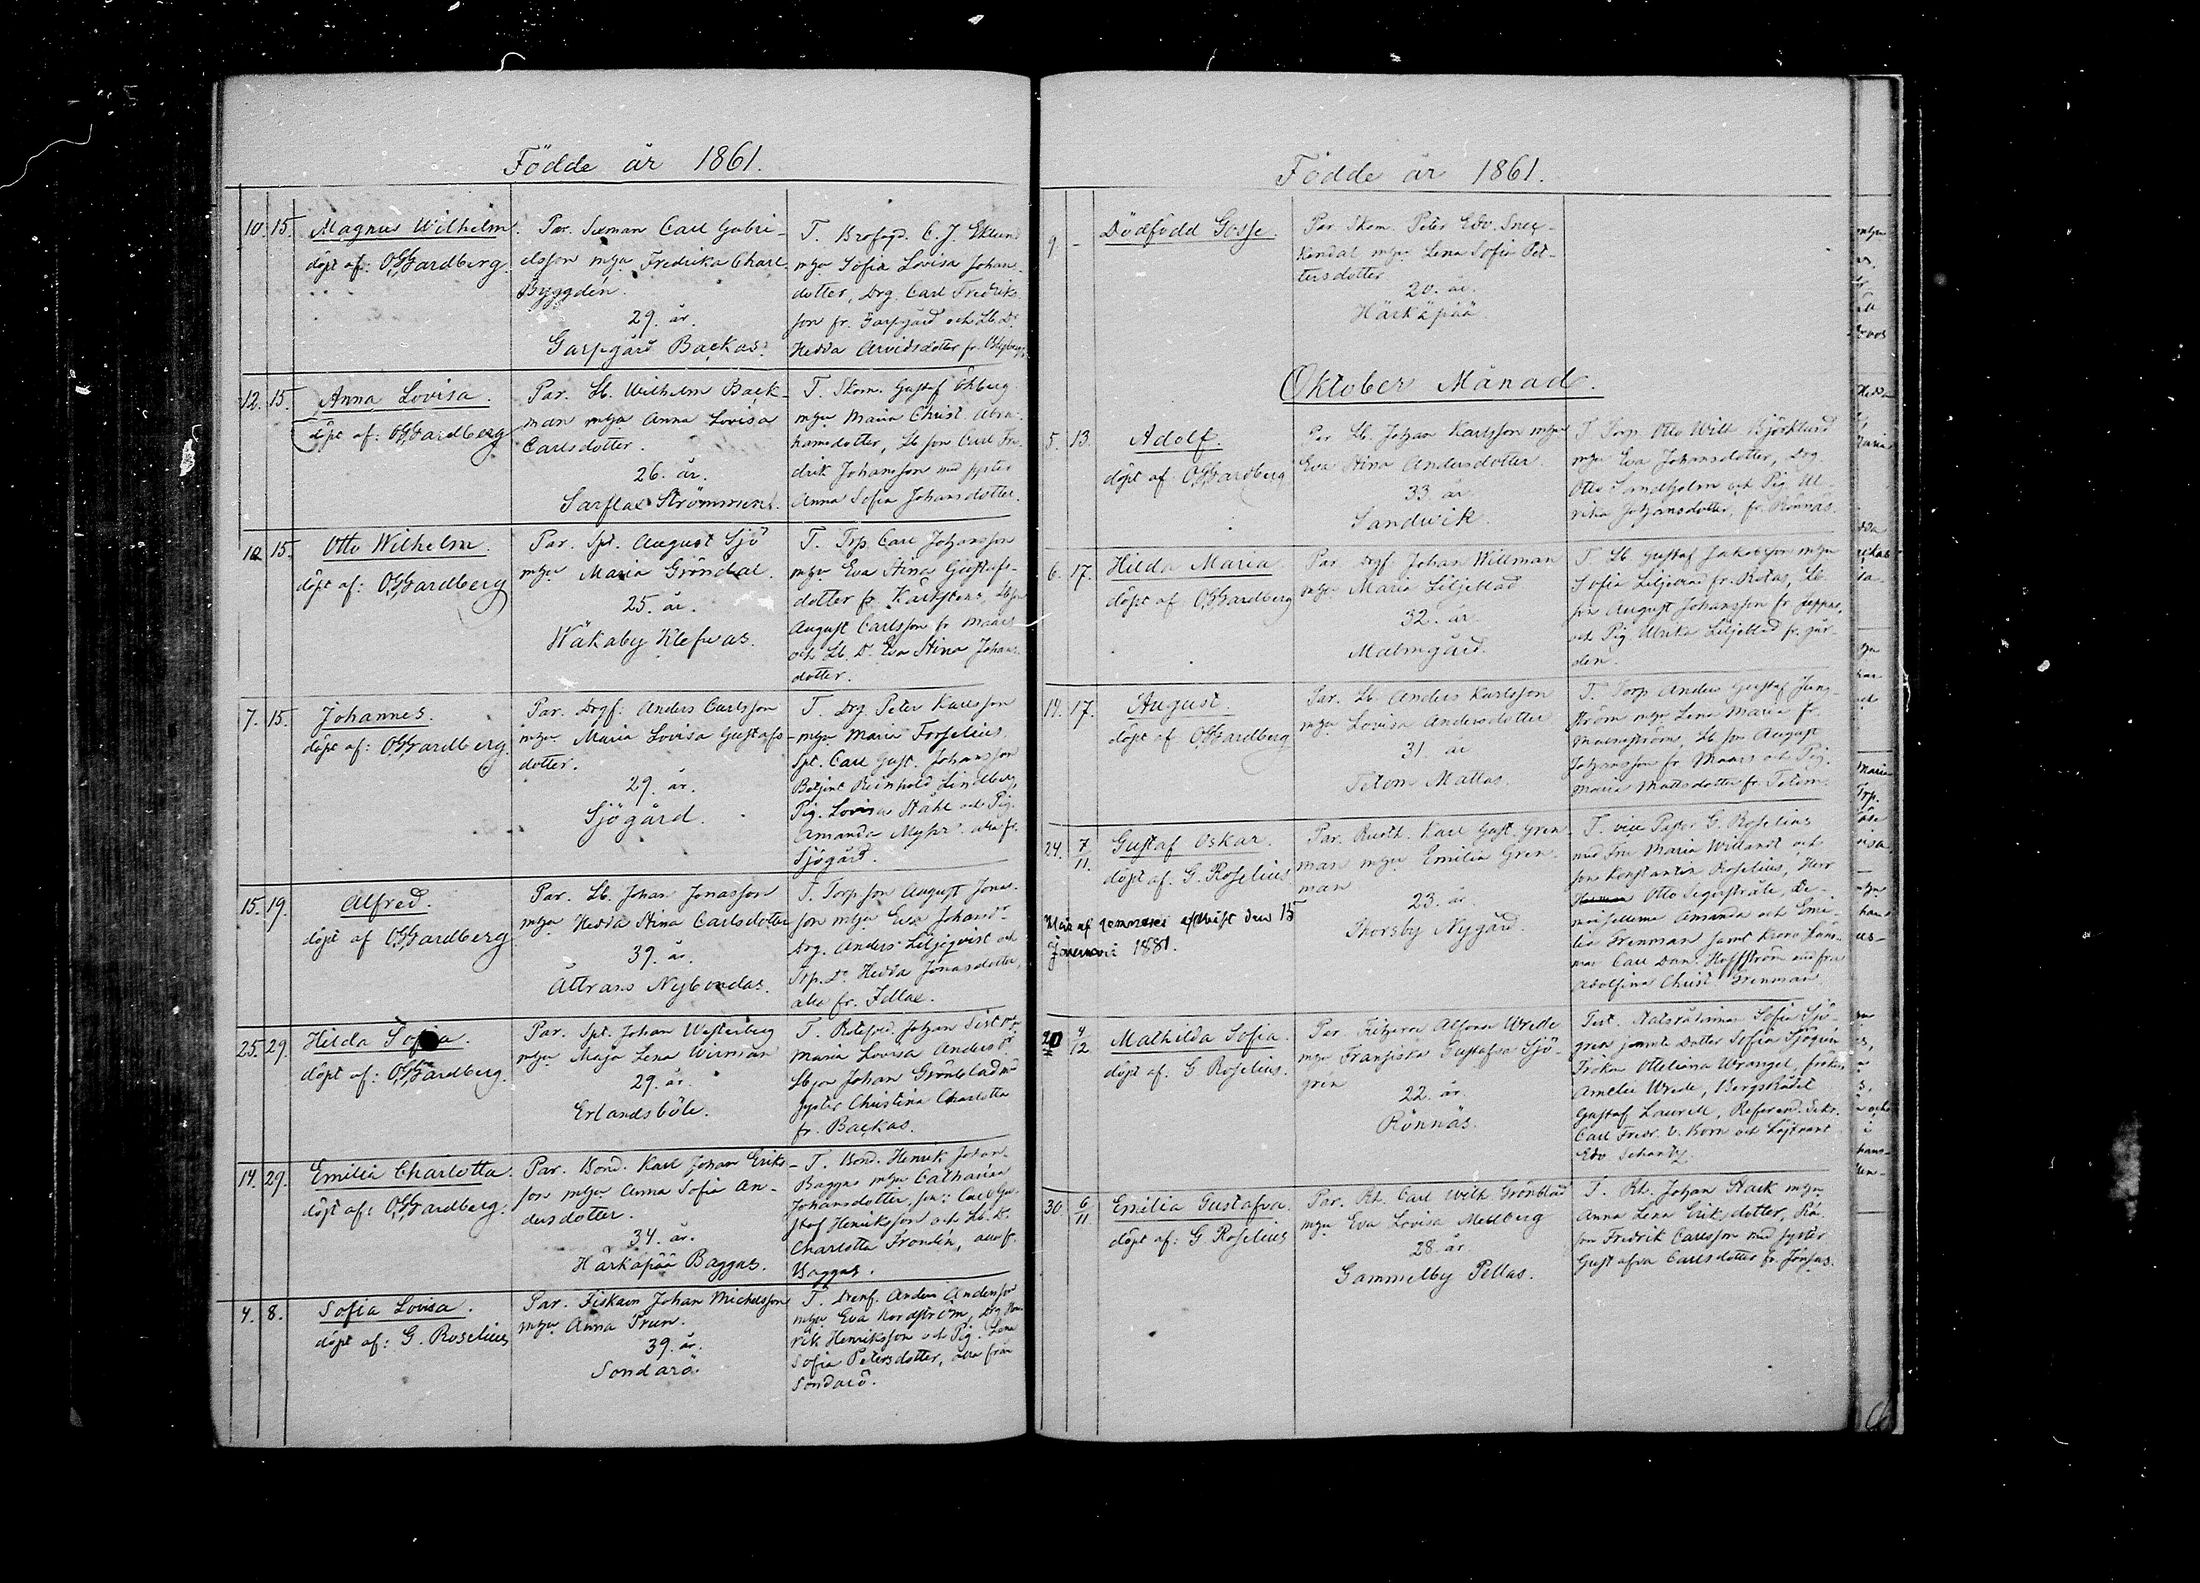 Födde år 1861.
10. 15. Magnus Wilhelm.
döpt af: O.G. Gardberg.
Par. Sexman Carl Gabri-
elsson m hu Fredrika Charl.
Byggdén.
29. år.
Garpgård Backas.
T. Brofogd. C. J. Eklund
m hu Sofia Lovisa Johans-
dotter, Drg. Carl Fredriks-
son fr. Garpgård och Lb. Dr
Hedda Arvidsdotter fr.
12. 15. Anna Lovisa.
döpt af: O.G. Gardberg
Par. Lb. Wilhelm Back-
man m hu Anna Lovisa
Carlsdotter.
26. år.
Sarflax Strömmens.
T. Skom. Gustaf Ökberg
m hu Maria Christ. Abra-
hamsdotter, Lb son Carl Fre-
drik Johansson med syster
Anna Sofia Johansdotter.
12. 15. Otto Wilhelm
döpt af: O.G. Gardberg
Par. Spt. August Sjö
m hu Maria Gröndal.
25. år.
Wäkaby Klefvas.
T. Trp. Carl Johansson
m hu Eva Stina Gustafs-
dotter fr. Karlstens, Lb son
August Carlsson fr Maars
och Lb. Dr Eva Stina Johans-
dotter.
7. 15. Johannes.
döpt af: O.G. Gardberg.
Par. Drgf: Anders Carlsson
m hu Maria Lovisa Gustafs-
dotter.
29. år.
Sjögård.
T. Drg. Peter Karlsson
m hu Maria Forselius,
Spt. Carl Gust. Johansson
Betjent Reinhold Lindberg,
Pig. Lovisa Ståhl och Pig.
Amanda alla fr.
Sjögård.
15. 19. Alfred.
döpt af O.G. Gardberg
Par. Lb. Johan Jonasson
m hu Hedda Stina Carlsdotter
39. år.
Åttrans Nybondas.
T. Torpson August Jonas-
son m hu Eva Johansdr
Drg. Anders Liljeqvist och
Trp. Dr Hedda Jonasdotter,
alla fr.
25. 29. Hilda Sofia.
döpt af: O.G. Gardberg.
Par. Spt. Johan Westerberg
m hu Maja Lena Wirman
29. år.
Erlandsböle.
T. Johan
Maria Lovisa Andersdr
Lbson Johan Grönblad m
syster Christina Charlotta
fr. Backas.
14. 29. Emilia Charlotta.
döpt af: O.G. Gardberg.
Par. Bond. Karl Johan Eriks-
son m hu Anna Sofia An-
dersdotter.
34. år.
Härkäpää Baggas.
T. Bond. Henrik Johan
Baggas m hu Catharina
Johansdotter, son: Carl Gu-
staf Henriksson och Lb. Dr
Charlotta Frondén, alla fr.
Baggas.
4. 8. Sofia Lovisa.
döpt af: G. Roselius
Par. Fiskarn Johan Michelsson
m hu Anna Prun.
39. år.
Sondarö.
T. Drenf. Anders Andersson
m hu Eva Nordström, Drg Hen-
rik Henriksson och Pig. Lena
Sofia Petersdotter, alla från
Sondarö.
Födde år 1861.
9. - Dödfödd Gosse.
Par Skom. Peter Edv. Snec-
kendal m hu Lena Sofia Pet-
tersdotter
20. år.
Härkäpää.
Oktober Månad.
5. 13. Adolf.
döpt af O.G. Gardberg
Par Lb. Johan Karlsson m hu
Eva Stina Andersdotter
33. år.
Sandwik.
T Torp. Otto Wilh. Björklund
m hu Eva Johansdotter, Drg.
Otto Sandholm och Pig. Ul-
rika Johansdotter, fr. Rönnäs.
6. 17. Hilda Maria
döpt af O.G. Gardberg
Par Drgf. Johan Willman
m hu Maria Liljeblad
32. år.
Malmgård.
T. Lb Gustaf Jakobsson m hu
Sofia Liljeblad fr. Lb
son August Johansson fr Jeppas,
och Pig Ulrika Liljeblad fr. går-
den.
14. 17. August.
döpt af O.G. Gardberg
Par. Lb Anders Karlsson
m hu Lovisa Andersdotter
31 år
Tetom Mattas.
T. Torp Anders Gustaf
ström m hu Lena Maria fr.
Malmströms, Lb son August
Johansson fr Maars och Pig.
Maria Mattsdotter fr. Tetom.
24. 7/11. Gustaf Oskar.
döpt af. G. Roselius
januari 1881.
Par. Rusth. Karl Gust. Gren-
man m hu Emilia Gren-
man
23. år.
Thorsby Nygård.
T. vice Pastor G. Roselius
med Fru Maria och
son Konstantin Roselius, Herr
Otto Segerstråle, De-
moisellerna Amanda och Emi-
lia Grenman samt Krono Läns-
man Carl Dan. Hoffström med fru
Adolfina Christ Grenman.
20 4/12 Mathilda Sofia.
döpt af. G Roselius.
Par. Friherre Alfons Wrede
m hu Fransiska Gustafva Sjö-
grén
22. år.
Rönnäs.
Test. Statsrådinnan Sofia Sjö-
gren samt Dotter Sofia Sjögrén
Fröken Otteliana Wrangel, fröken
Amelie Wrede, Bergsrådet
Gustaf Laurell, Referend. Sekr.
Carl Fredr. v. Born och Löjtnant
Edv Schantz.
30. 6/11 Emilia Gustafva.
döpt af: G Roselius
Par. Rt. Carl Wilh Grönblad
m hu Eva Lovisa Mellberg
28. år.
Gammelby Pellas.
T. Rt. Johan Stark m hu
Anna Lena Eriksdotter,
son Fredrik Carlsson med syster
Gustafva Carlsdotter fr. Jonsas.